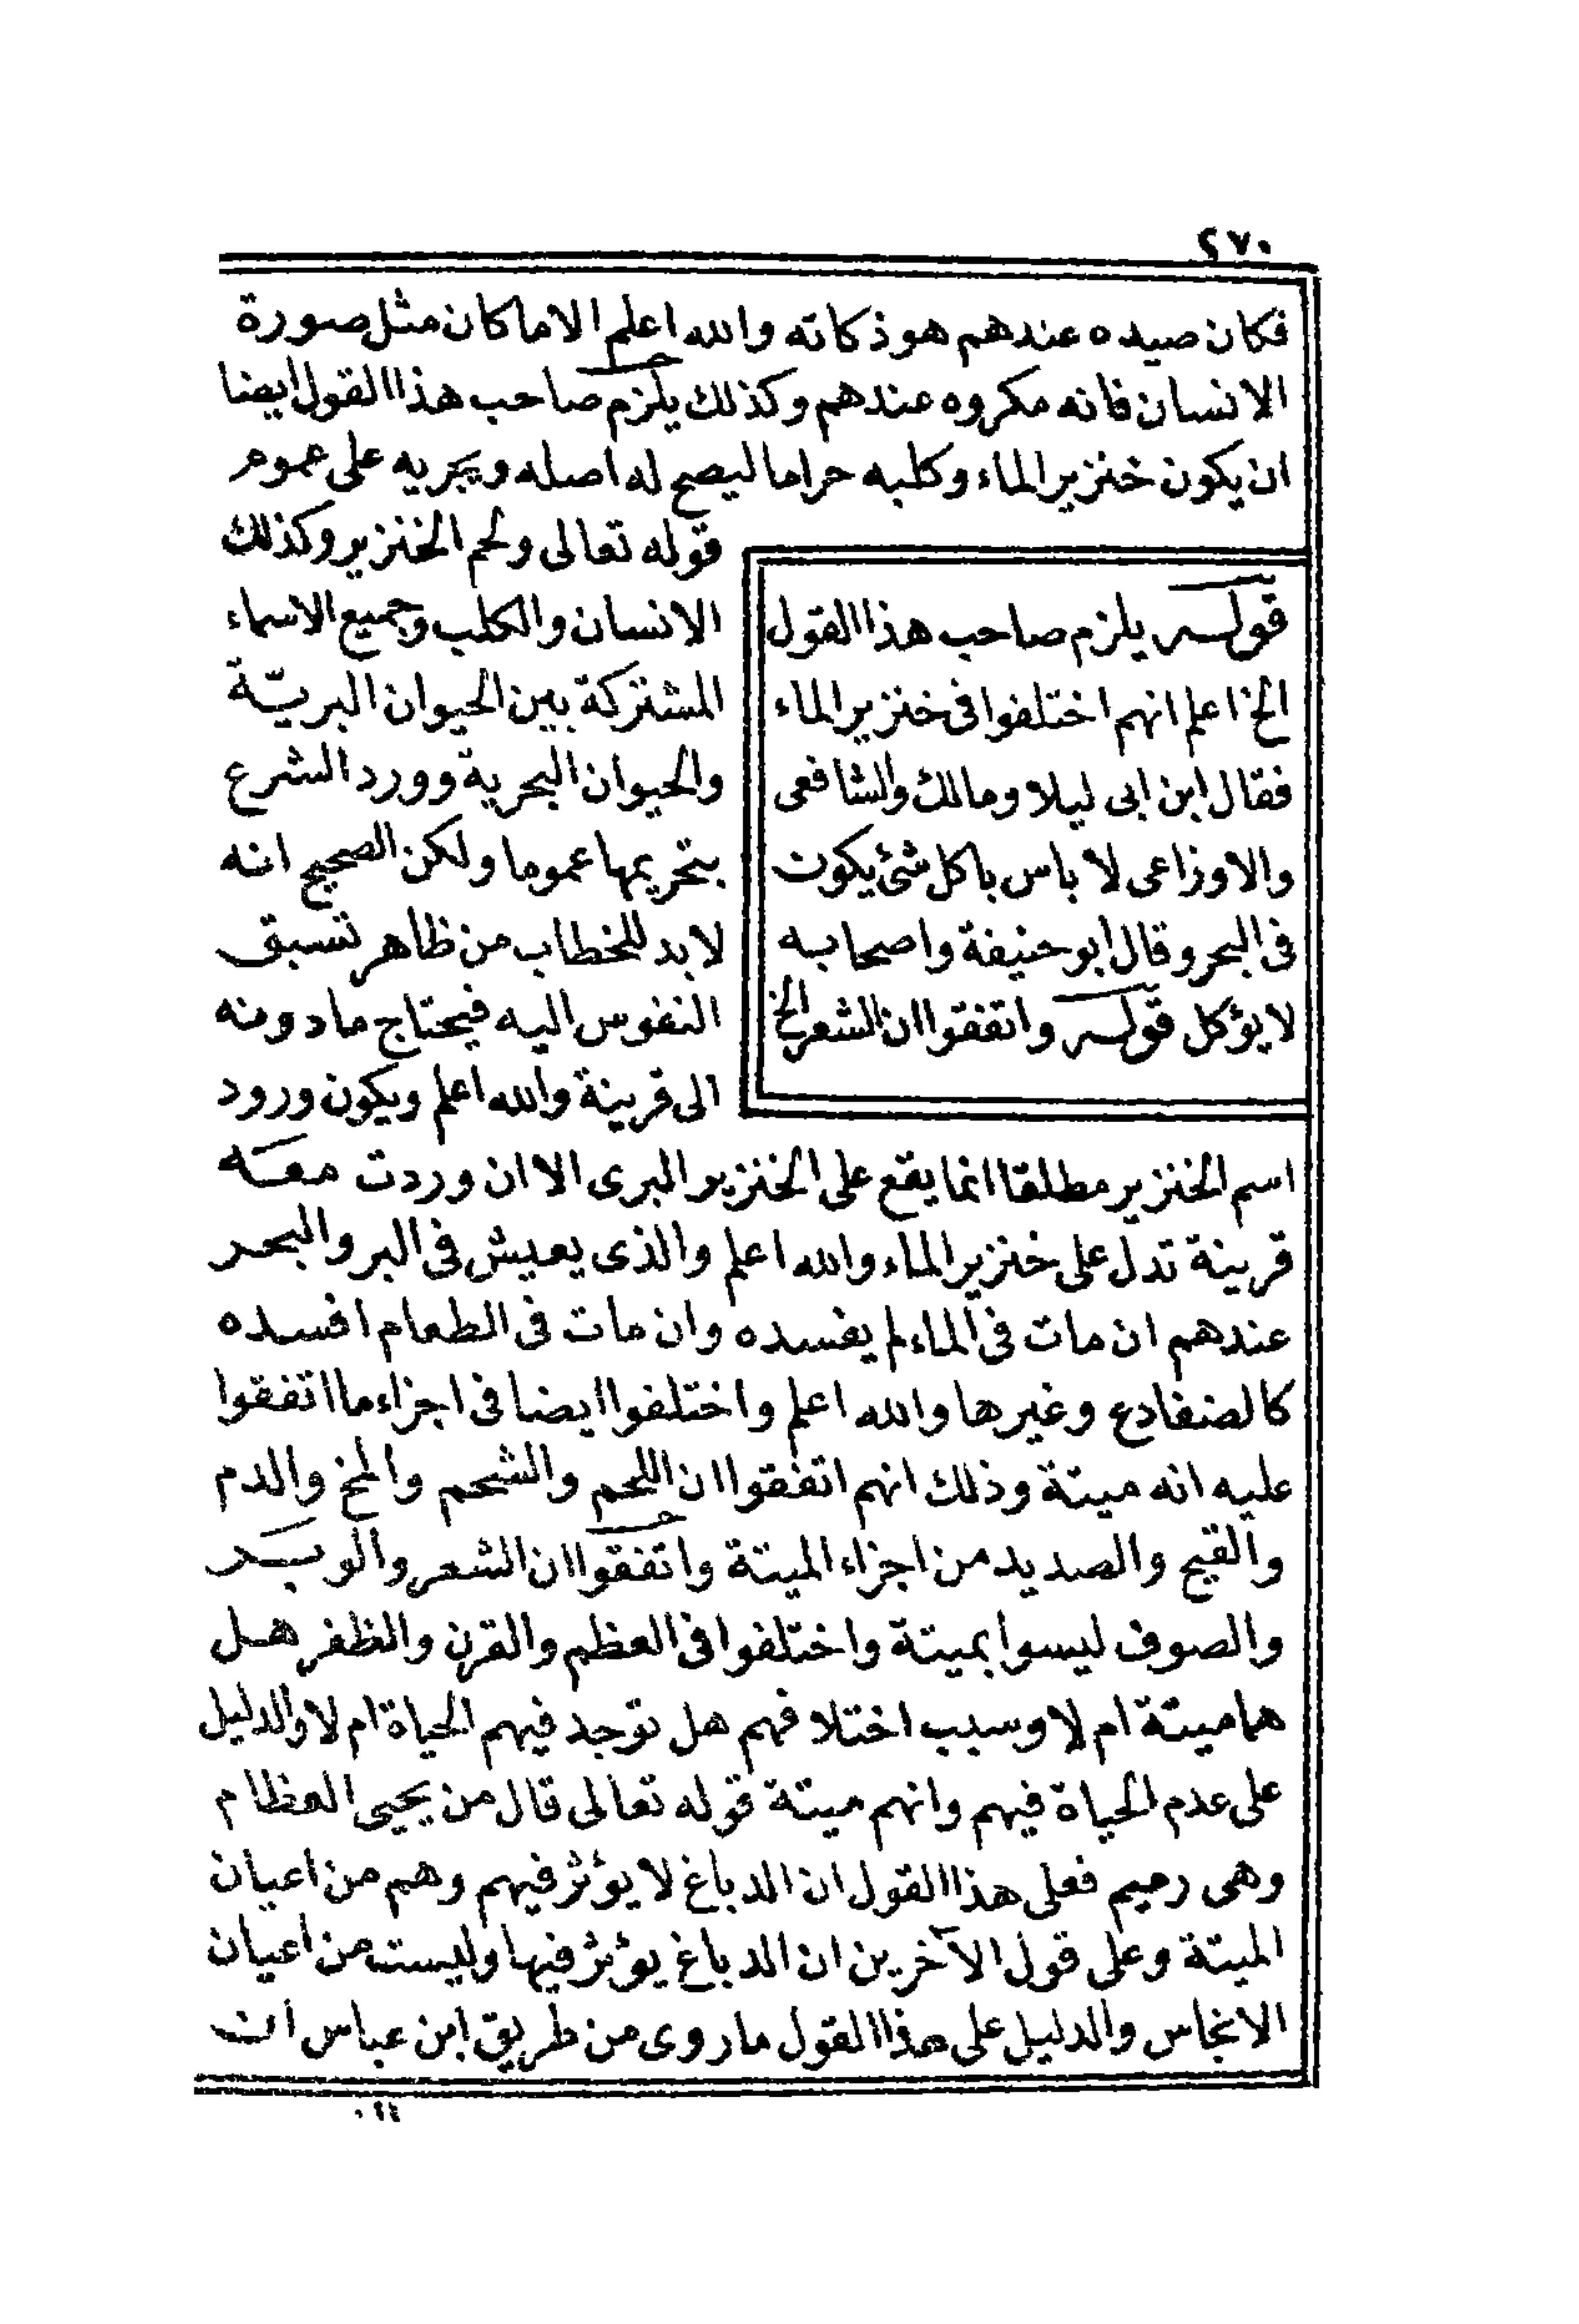 ٢٧٠
فكان صيده عندهم هو ذكاته والله اعلم الا ما كان مثل صورة
الانسان فانه مكروه عندهم وكذلك يلزم صاحب هذا القول ايضا
ان يكون خنزير الماء وكلبه حراما ليصح له اصله ويجريه على عموم
قوله تعالى ولحم الخنزير وكذلك
الانسان والكلب وجميع الاسماء
المشتركة بين الحيوان البريّة
والحيوان البحرية وورد الشرع
بتحريمها عموما ولكن الصحيح انه
لابد للخطاب من ظاهر تسبق
النفوس اليه فيحتاج ما دونه
الى قرينة والله اعلم ويكون ورود
قوله يلزم صاحب هذا القول
الخ اعلم انهم اختلفوا فى خنزير الماء
فقال ابن ابى ليلا ومالك والشافعى
والاوزاعى لا باس باكل شئ يكون
فى البحر وقال ابو حنيفة واصحابه
لا يؤكل قوله واتفقوا ان الشعر الخ
اسم الخنزير مطلقا انما يقع على الخنزير البرى الا ان وردت معه
قرينة تدل على خنزير الماء والله اعلم والذى يعيش فى البر والبحر
عندهم ان مات فى الماء لم يفسده وان مات فى الطعام افسده
كالضفادع وغيرها والله اعلم واختلفوا ايضا فى اجزاء ما اتفقوا
عليه انه ميتة وذلك انهم اتفقوا ان اللحم والشحم والمخ والدم
والقيح والصديد من اجزاء الميتة واتفقوا ان الشعر والوبر
والصوف ليسوا بميتة واختلفوا فى العظم والقرن والظفر هل
هما ميتة ام لا وسبب اختلافهم هل توجد فيهم الحياة ام لا والدليل
على عدم الحياة فيهم وانهم ميتة قوله تعالى قال من يحيى العظام
وهى رميم فعلى هذا القول ان الدباغ لا يؤثر فيهم وهم من اعيان
الميتة وعلى قول الآخرين ان الدباغ يؤثر فيها وليست من اعيان
الانجاس والدليل على هذا القول ما روى من طريق ابن عباس ان